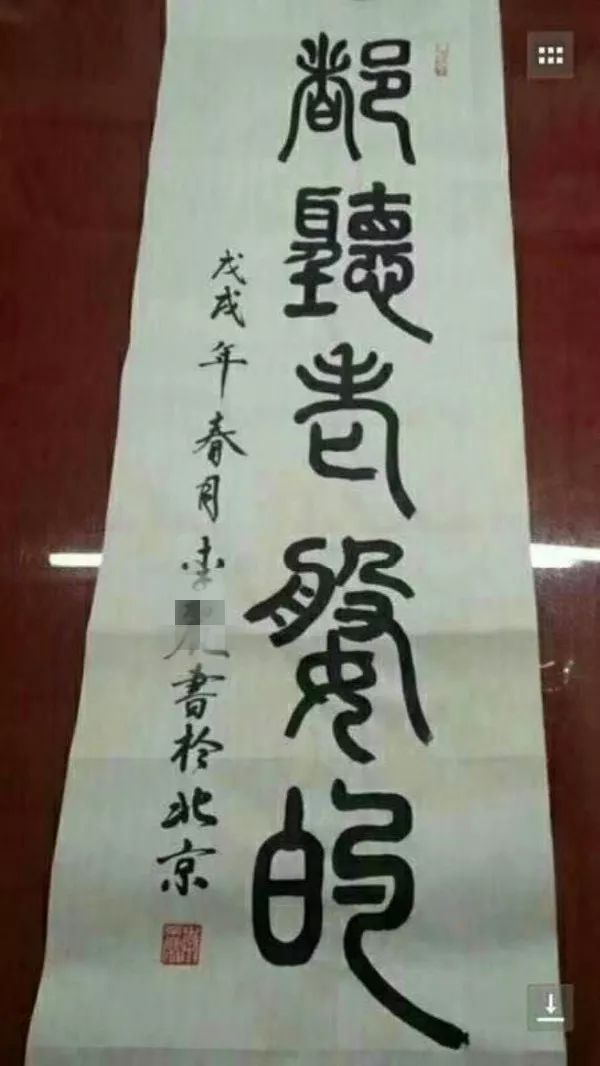 都聽老婆的
戊戌年春月李書於北京